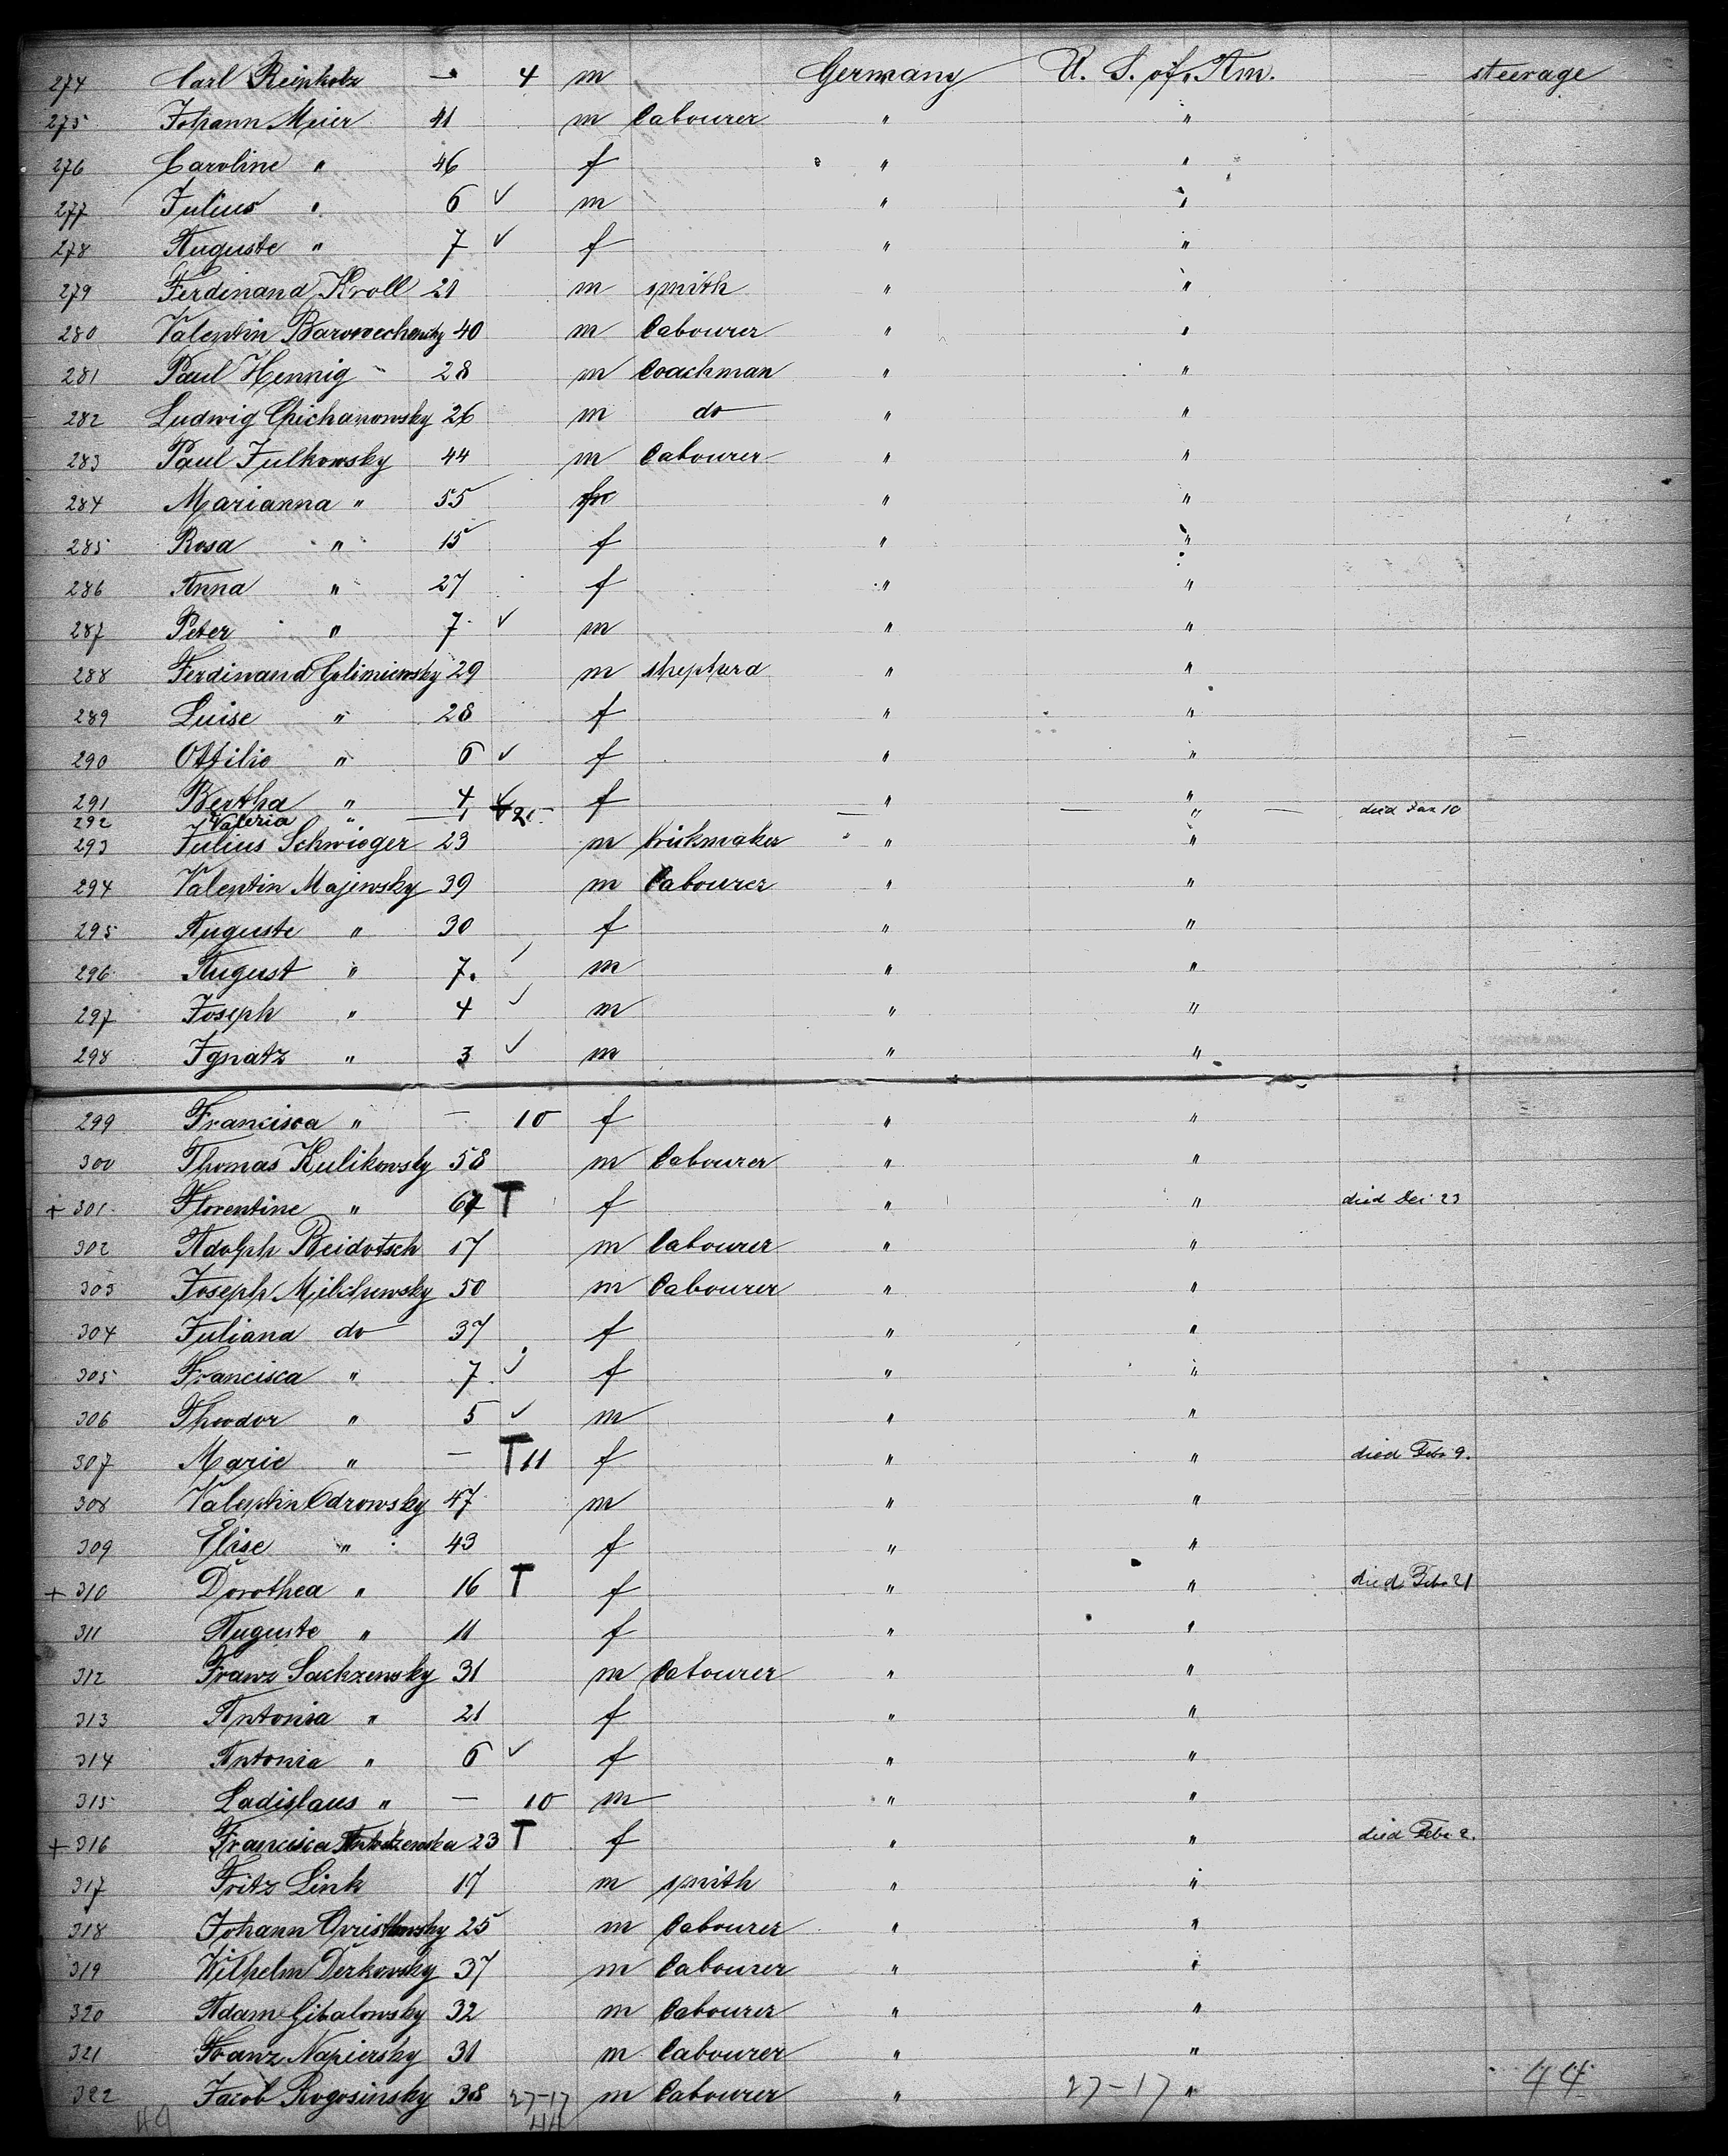 274 Carl Reinholz — 4 m Germany U. S. of Am. steerage
275 Johann Meier 41 m Labourer " "
276 Caroline " 46 f " "
277 Julius " 6 ✓ m " "
278 Auguste " 7 ✓ f " "
279 Ferdinand Kroll 21 m smith " "
280 Valentin 40 m Labourer " "
281 Paul Hennig 28 m Coachman " "
282 Ludwig Chichanowsky 26 m do " "
283 Paul Julkowsky 44 m Labourer " "
284 Marianna " 55 f " "
285 Rosa " 15 f " "
286 Anna " 27 f " "
287 Peter " 7 ✓ m " "
288 Ferdinand Golimiewsky 29 m shepherd " "
289 Luise " 28 f " "
290 Ottilie " 6 ✓ f " "
291 Bertha " 4 ✓ f " "
292 Valeria " — " " died Jan 10
293 Julius Schwieger 23 m brickmaker " "
294 Valentin Majewsky 39 m Labourer " "
295 Auguste " 30 f " "
296 August " 7. ✓ m " "
297 Joseph " 4 ✓ m " "
298 Ignatz " 3 ✓ m " "
299 Francisca " — 10 f " "
300 Thomas Kulikowsky 58 m Labourer " "
+ 301 Florentine " 67 T f " " died Dec 23
302 Adolph Beidotsch 17 m Labourer " "
303 Joseph Milchewsky 50 m Labourer " "
304 Juliana do 37 f " "
305 Francisca " 7 ✓ f " "
306 Theodor " 5 ✓ m " "
307 Marie " — T 11 f " " died Febr 9.
308 Valentin Odrowsky 47 m " "
309 Elise " 43 f " "
+ 310 Dorothea " 16 T f " " died Febr 21
311 Auguste " 11 f " "
312 Franz Sachzewsky 31 m Labourer " "
313 Antonia " 21 f " "
314 Antonia " 6 ✓ f " "
315 Ladislaus " — 10 m " "
+ 316 Francisca 23 T f " " died Febr 2.
317 Fritz Link 17 m smith " "
318 Johann 25 m Labourer " "
319 Wilhelm Derkowsky 37 m Labourer " "
320 Adam Gibalowsky 32 m Labourer " "
321 Franz Napiersky 31 m Labourer " "
322 Jacob Rogosinsky 38 27-17 m Labourer " 27-17 " 44
49 44